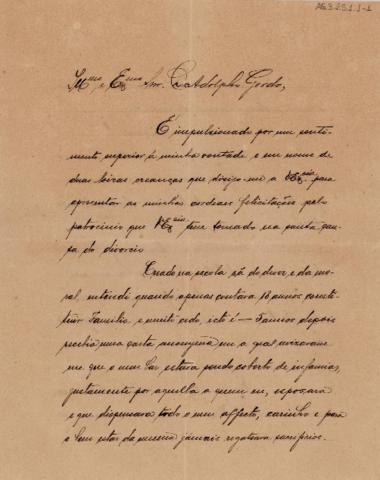 AG3.2.5.1.1-1
Illmo e Exmo Snr. Dr Adolpho Gordo,
É impulsionado por um senti-
mento superior á minha vontade e em nome de
duas loiras creanças que dirijo-me a V. Excia para
apresentar as minhas cordeaes felicitações pelo
patrocinio que V. Excia tem tomado na santa cau-
sa do divorcio.
Creado na escola sã do dever e da mo-
ral, entendi quando apenas contava 18 annos consti-
tuir Familia e muito cedo, isto é — 7 annos depois
recebia uma carta anonyma em a qual avizavam
me que o meu lar estava sendo coberto de infamias,
justamente por aquella a quem eu, esposara
e que dispensava todo o meu affecto, carinho e para
o bem estar da mesma jámais regateara sacrificios.